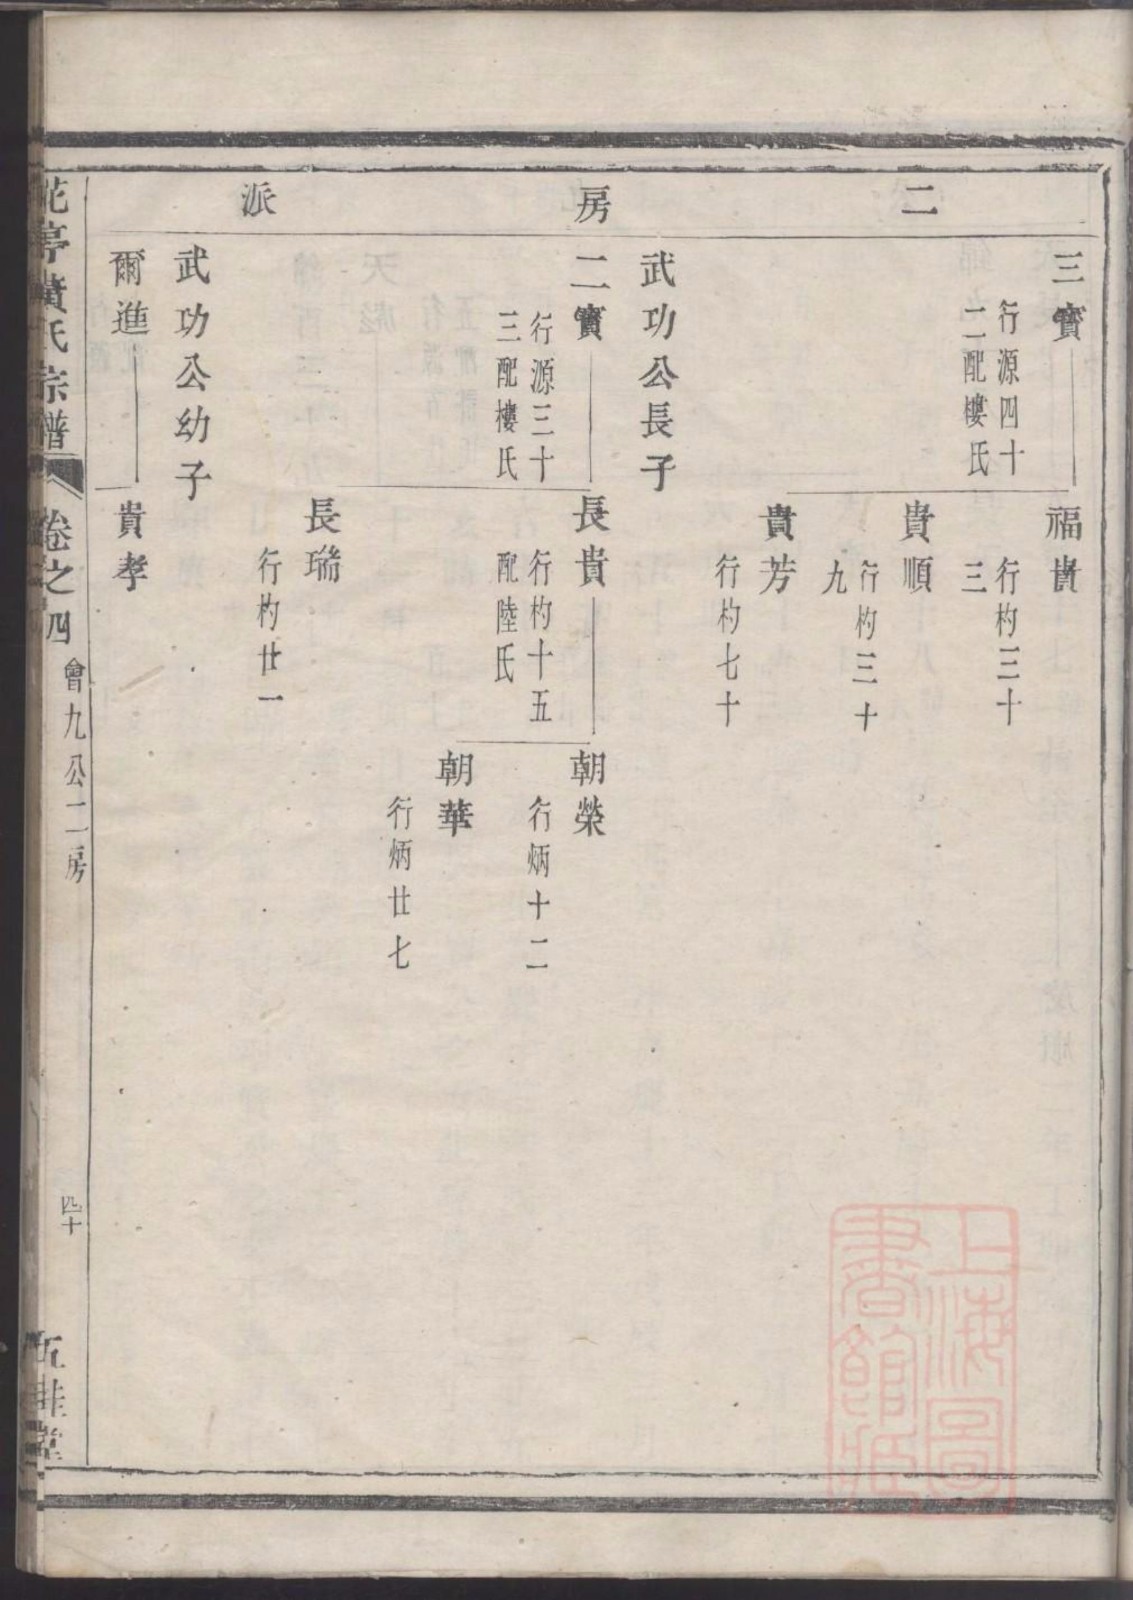 二房派
三寳
行源四十
二配樓氏
福貴
行杓三十
三
貴順
行杓三十
九
貴芳
行杓七十
武功公長子
二寳
行源三十
三配樓氏
長貴
行杓十五
配陸氏
朝榮
行炳十二
朝華
行炳廿七
長瑞
行杓廿一
武功公幼子
爾進
貴孝
花亭黄氏宗譜
卷之四
會九公二房
四十
五桂堂
上海圖
書館藏